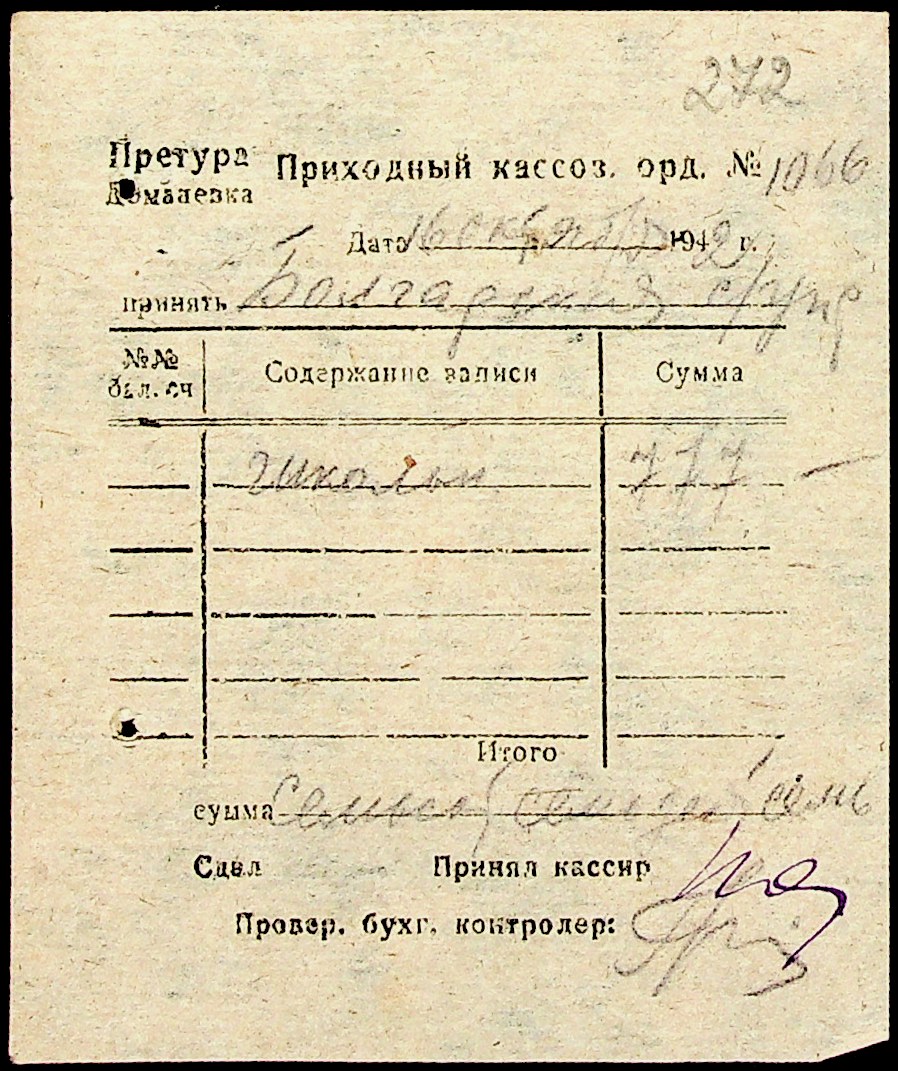 272
Претура Приходный кассов. орд. № 1066
Домапевка
Дата 16 октября 1942 г.
принять Болгарская с/упр
№№ бал. сч Содержание записи Сумма
школьн 717 —
Итого
сумма Семьсот семь
Сдал Принял кассир
Провер. бухг. контролер: